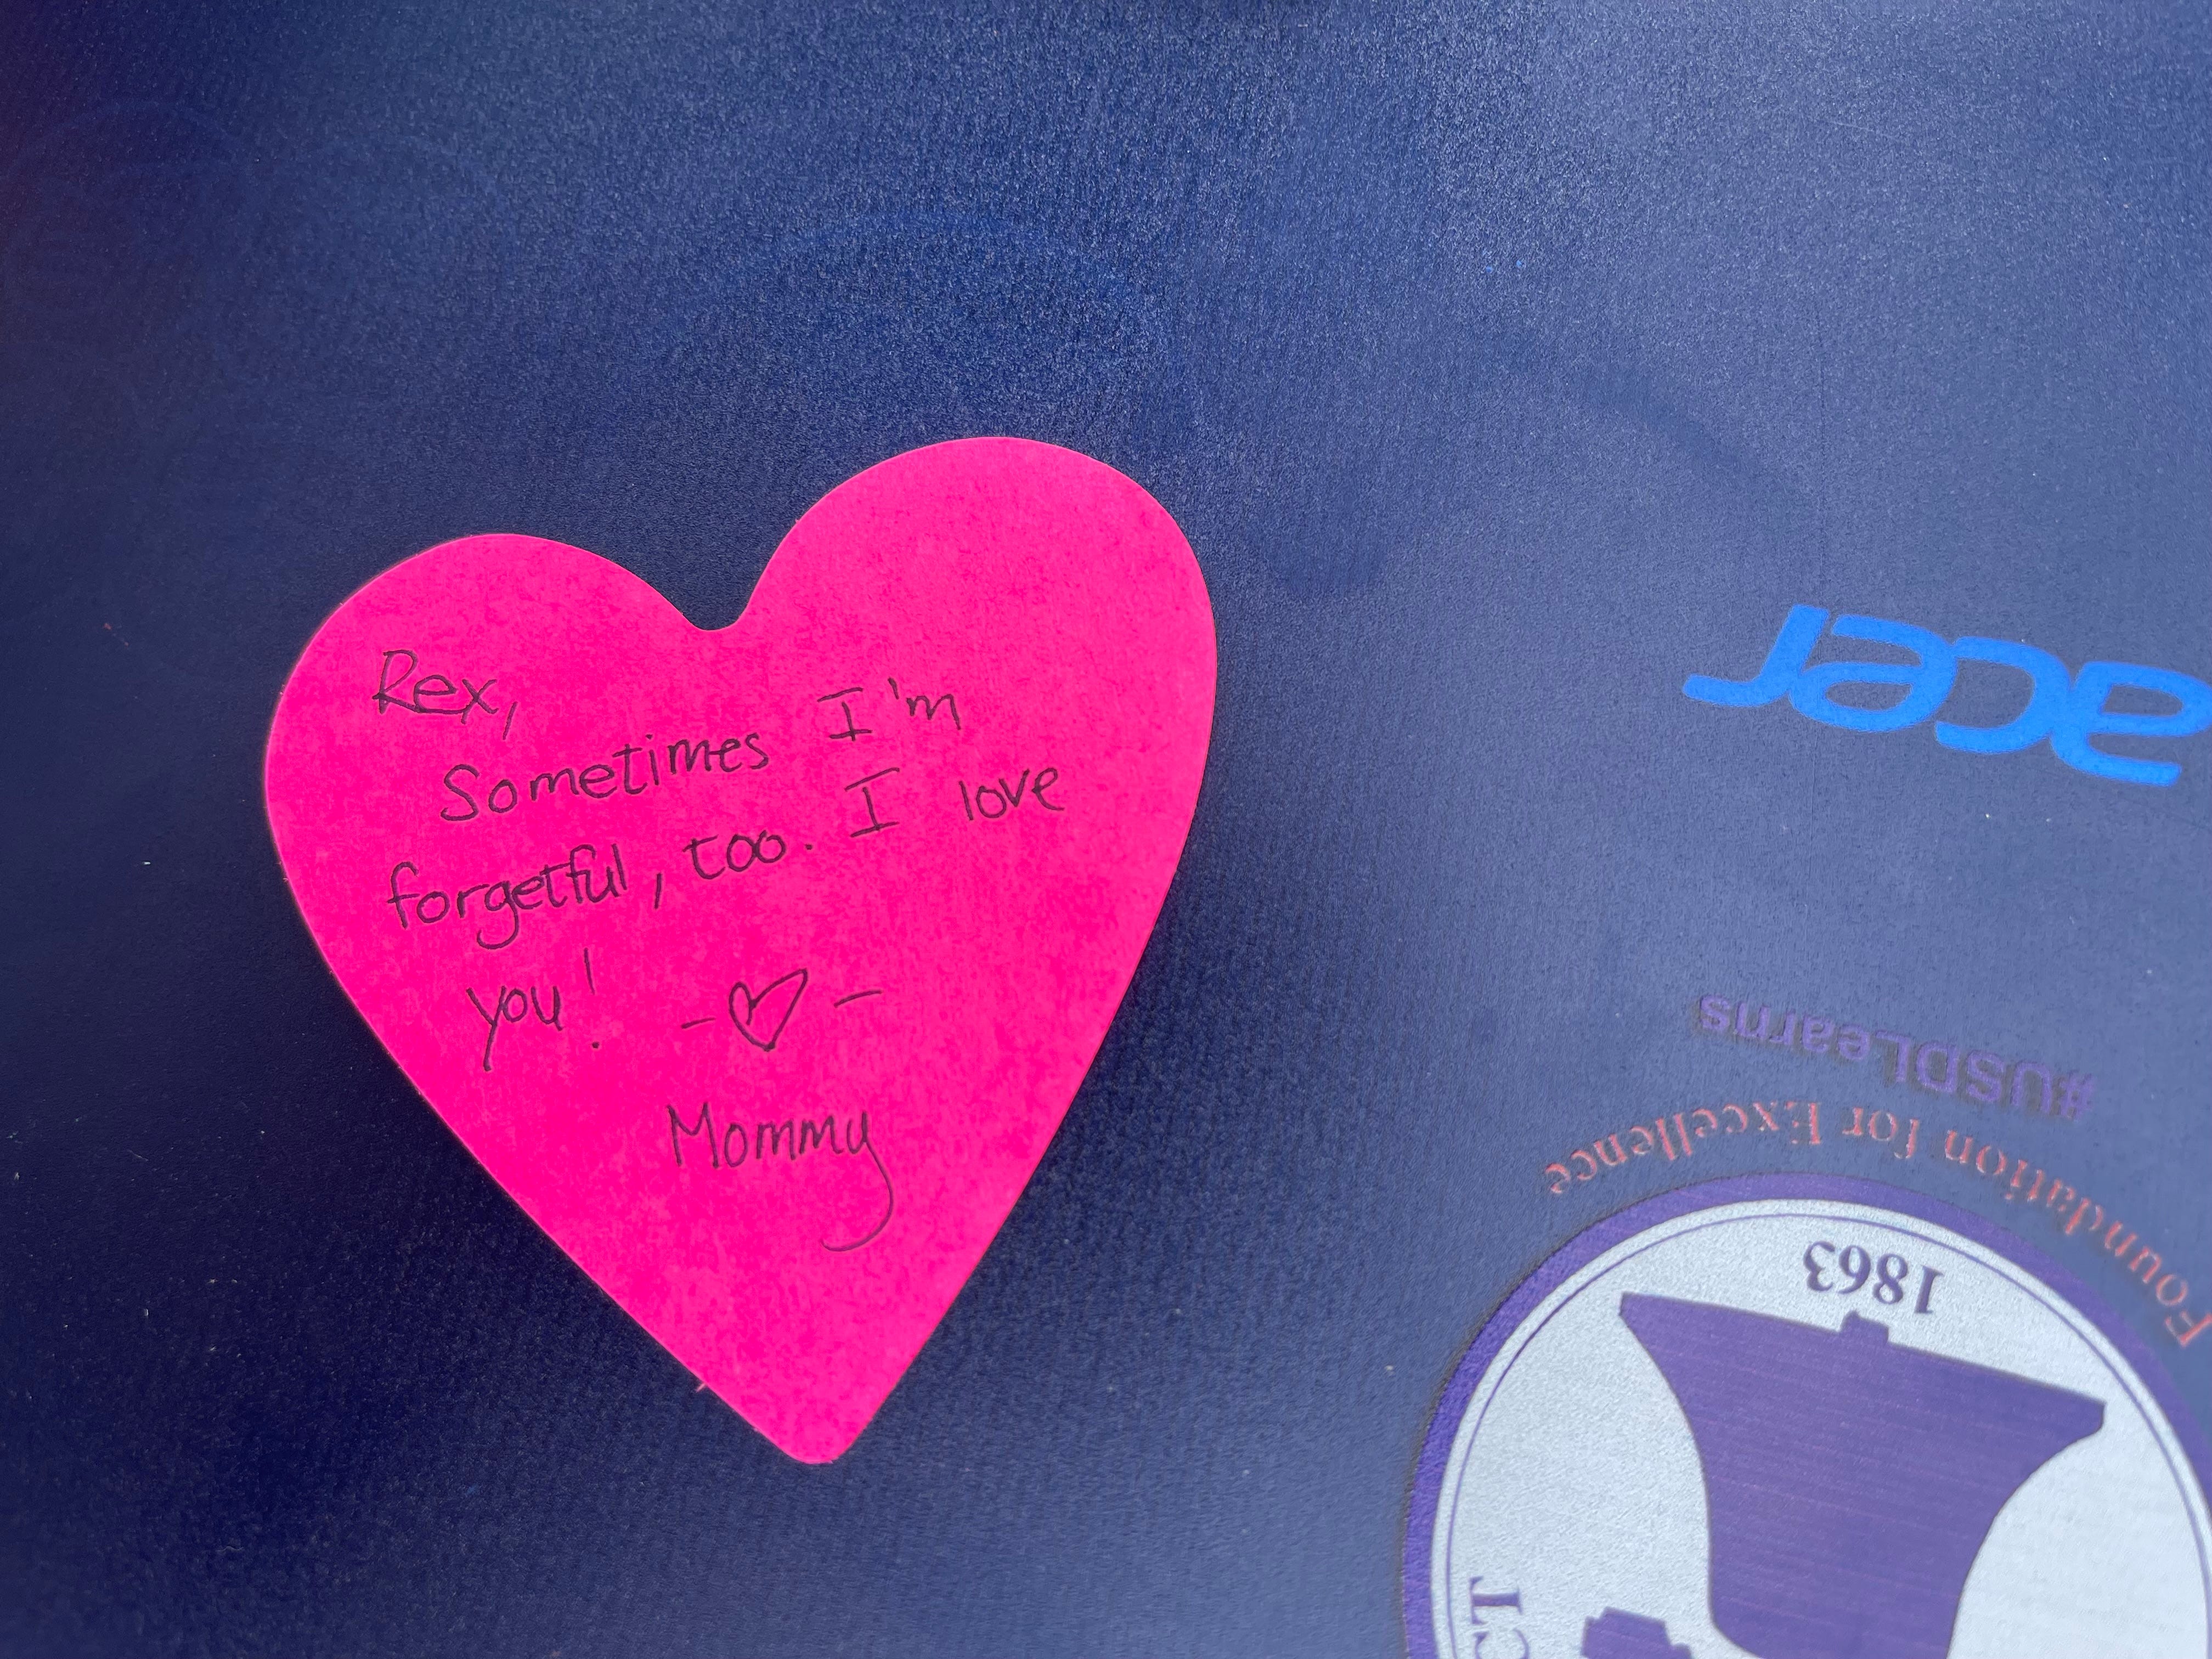 Rex,
Sometimes I'm
forgetful, too. I love
you! -♡-
Mommy
acer
#USDLearns
Foundation for Excellence
1863